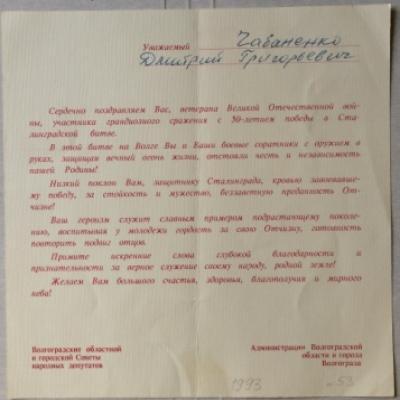 Уважаемый Чабаненко
Дмитрий Григорьевич
Сердечно поздравляем Вас, ветерана Великой Отечественной вой-
ны, участника грандиозного сражения с 50-летием победы в Ста-
линградской битве.
В этой битве на Волге Вы и Ваши боевые соратники с оружием в
руках, защищая вечный огонь жизни, отстояли честь и независимость
нашей Родины!
Низкий поклон Вам, защитнику Сталинграда, кровью завоевавше-
му победу, за стойкость и мужество, беззаветную преданность От-
чизне!
Ваш героизм служит славным примером подрастающему поколе-
нию, воспитывая у молодежи гордость за свою Отчизну, готовность
повторить подвиг отцов.
Примите искренние слова глубокой благодарности и
признательности за верное служение своему народу, родной земле!
Желаем Вам большого счастья, здоровья, благополучия и мирного
неба!
Волгоградские областной
и городской Советы
народных депутатов
Администрации Волгоградской
области и города
Волгограда
1993
53